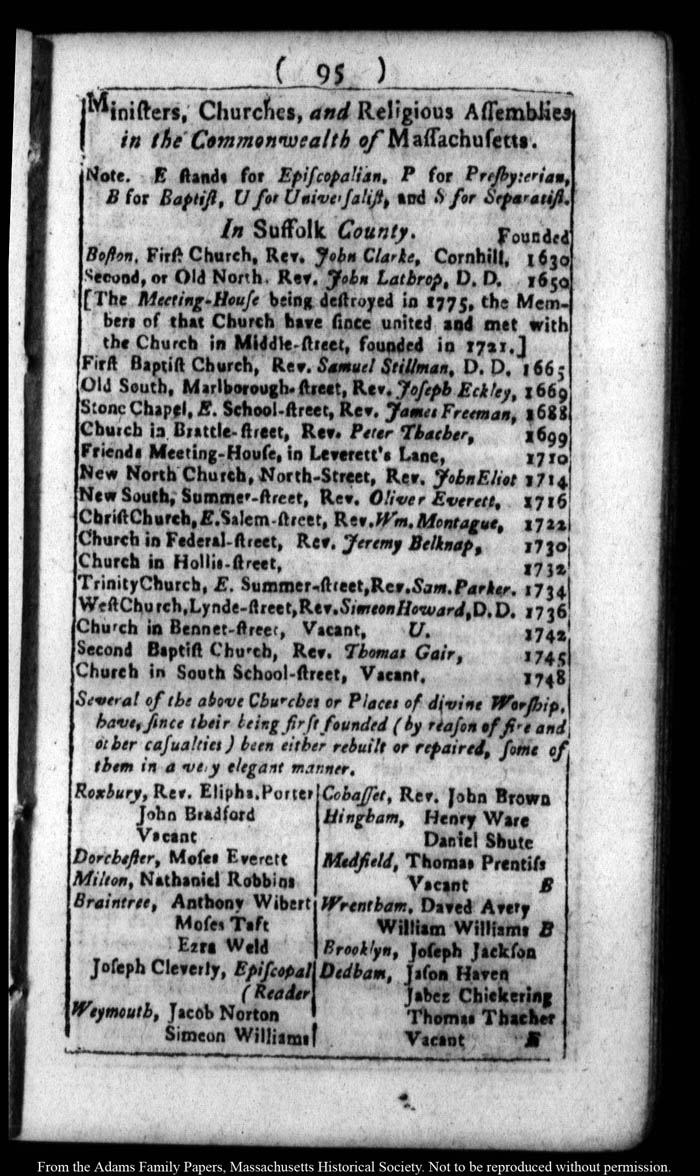 ( 95 )
Miniſters, Churches, and Religious Aſſemblies
in the Commonwealth of Maſſachuſetts.
Note. E ſtands for Epiſcopalian, P for Preſbyterian,
B for Baptiſt, U for Univerſaliſt, and S for Separatiſt.
In Suffolk County. Founded
Boſton, Firſt Church, Rev. John Clarke, Cornhill, 1630
Second, or Old North, Rev. John Lathrop, D. D. 1650
[The Meeting-Houſe being deſtroyed in 1775, the Mem-
bers of that Church have ſince united and met with
the Church in Middle-ſtreet, founded in 1721.]
Firſt Baptiſt Church, Rev. Samuel Stillman, D. D. 1665
Old South, Marlborough-ſtreet, Rev. Joſeph Eckley, 1669
Stone Chapel, E. School-ſtreet, Rev. James Freeman, 1688
Church in Brattle-ſtreet, Rev. Peter Thacher, 1699
Friends Meeting-Houſe, in Leverett's Lane, 1710
New North Church, North-Street, Rev. John Eliot 1714
New South, Summer-ſtreet, Rev. Oliver Everett, 1716
Chriſt Church, E. Salem-ſtreet, Rev. Wm. Montague, 1722
Church in Federal-ſtreet, Rev. Jeremy Belknap, 1730
Church in Hollis-ſtreet, 1732
Trinity Church, E. Summer-ſtreet, Rev. Sam. Parker. 1734
Weſt Church, Lynde-ſtreet, Rev. Simeon Howard, D. D. 1736
Church in Bennet-ſtreet, Vacant, U. 1742
Second Baptiſt Church, Rev. Thomas Gair, 1745
Church in South School-ſtreet, Vacant. 1748
Several of the above Churches or Places of divine Worſhip,
have, ſince their being firſt founded (by reaſon of fire and
other caſualties) been either rebuilt or repaired, ſome of
them in a very elegant manner.
Roxbury, Rev. Elipha. Porter
John Bradford
Vacant
Dorcheſter, Moſes Everett
Milton, Nathaniel Robbins
Braintree, Anthony Wibert
Moſes Taft
Ezra Weld
Joſeph Cleverly, Epiſcopal
(Reader
Weymouth, Jacob Norton
Simeon Williams
Cohaſſet, Rev. John Brown
Hingham, Henry Ware
Daniel Shute
Medfield, Thomas Prentiſs
Vacant B
Wrentham, Daved Avery
William Williams B
Brooklyn, Joſeph Jackſon
Dedham, Jaſon Haven
Jabez Chickering
Thomas Thacher
Vacant
From the Adams Family Papers, Massachusetts Historical Society. Not to be reproduced without permission.